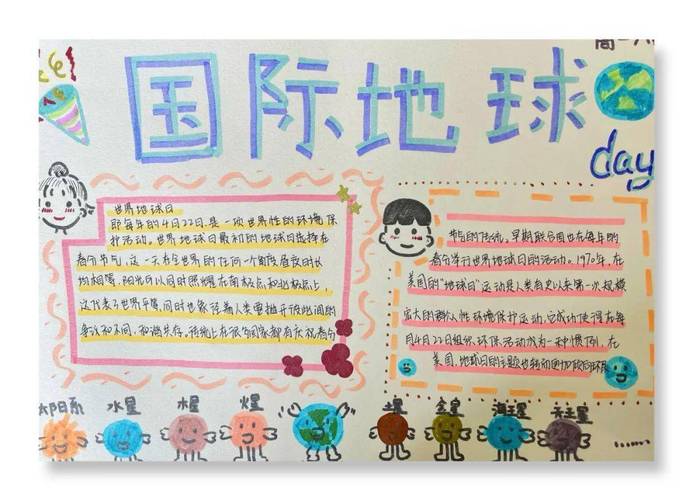 国际地球
day
世界地球日
即每年的4月22日,是一项世界性的环境保
护活动。世界地球日最初的地球日选择在
春分节气,这一天在全世界的任何一个角度昼夜时长
均相等,阳光可以同时照耀在南极点和北极点上,
这代表了世界平等,同时也象征着人类要抛开彼此间的
争议和不同,和谐共存。传统上在很多国家都有庆祝春分
节日的传统。早期联合国也在每年的
春分举行世界地球日的活动。1970年,在
美国的"地球日"运动是人类有史以来第一次规模
宏大的群众性环境保护运动,它成功使得在每
年4月22日组织环保活动成为一种惯例,在
美国,地球日的主题也转而更加
太阳系
水星
木星
火星
土星
金星
海王星
天王星